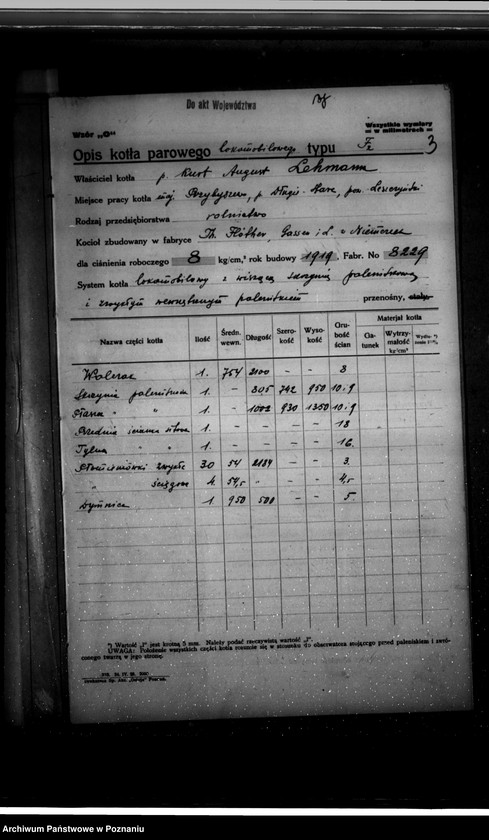 Do akt Województwa
Wzór „O“
Wszystkie wymiary
— w milimetrach —
Opis kotła parowego lokomobilowego typu Fz 3
Właściciel kotła p. Kurt August Lehmann
Miejsce pracy kotła maj. Przybyszewo, p. Długie Stare, pow. Leszczyński
Rodzaj przedsiębiorstwa rolnictwo
Kocioł zbudowany w fabryce Th. Flöther, Gassen i. L. w Niemczech
dla ciśnienia roboczego 8 kg/cm,² rok budowy 1919. Fabr. No 8229
System kotła lokomobilowy z wiszącą skrzynią paleniskową
i zwykłym wewnętrznym paleniskiem przenośny, stały.
Nazwa części kotła Ilość Średn. wewn. Długość Szerokość Wysokość Grubość ścian Materjał kotła Gatunek Wytrzymałość kg/cm²
Walczak 1. 754 2100 8
Skrzynia paleniskowa 1. – 805 742 950 10 i 9
Płaszcz " " 1. – 1002 930 1350 10 i 9
Przednia ściana sitowa 1. – – – – 18
Tylna " " 1. – – – – 16.
Płomieniówki zwykłe 30 54 2184 – – 3.
" ściągowe 4. 54,5 " – – 4,5
Dymnica 1. 950 500 5.
*) Wartość „l“ jest kroiną 5 mm. Należy podać rzeczywistą wartość „l“.
UWAGA: Położenie wszystkich części kotła rozumie się w stosunku do obserwatora stojącego przed paleniskiem i zwróconego twarzą w jego stronę.